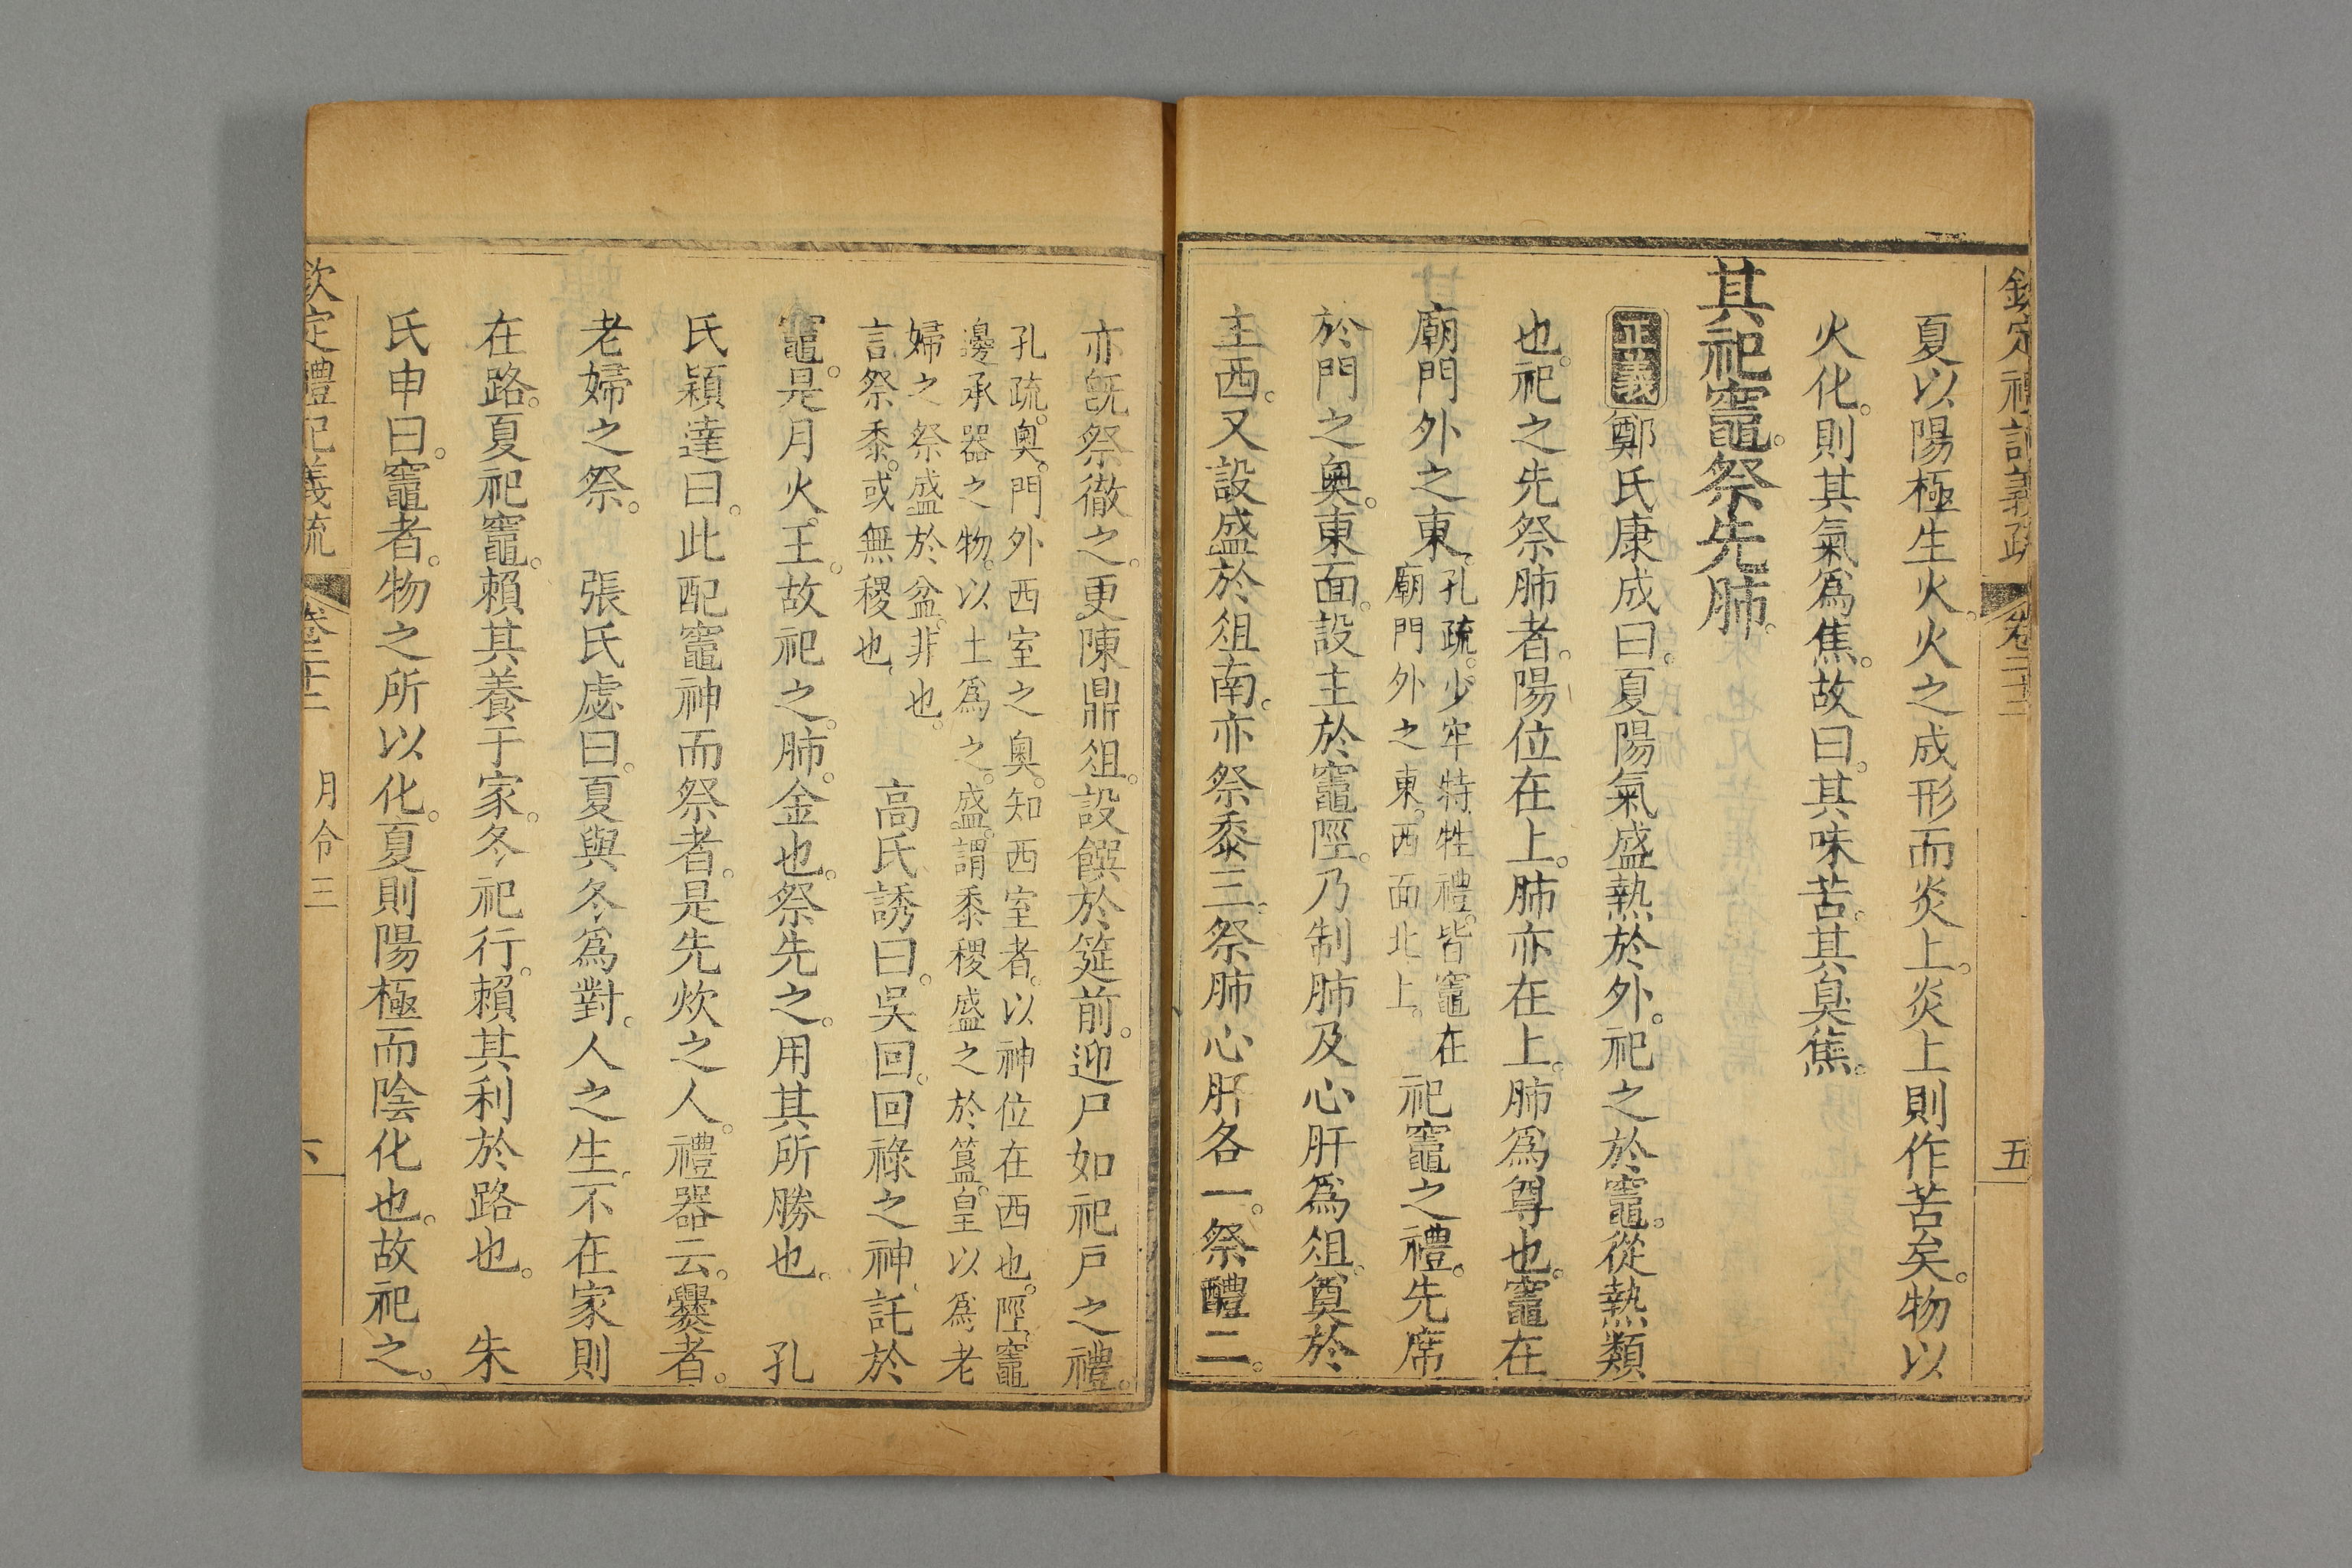 欽定禮記義疏 卷二十二 五
夏以陽極生火。火之成形而炎上。炎上則作苦矣。物以
火化。則其氣爲焦。故曰。其味苦。其臭焦。
其祀竈。祭先肺。
正義 鄭氏康成曰。夏陽氣盛熱於外。祀之於竈。從熱類
也。祀之先祭肺者。陽位在上。肺亦在上。肺爲尊也。竈在
廟門外之東。孔疏。少牢特牲禮。皆竈在廟門外之東。西面北上。祀竈之禮。先席
於門之奥。東面。設主於竈陘。乃制肺及心肝爲俎。奠於
主西。又設盛於俎南。亦祭黍三。祭肺心肝各一。祭醴二。
亦旣祭徹之。更陳鼎俎。設饌於筵前。迎尸如祀戸之禮。
孔疏。奥。門外西室之奥。知西室者。以神位在西也。陘。竈
邊承器之物。以土爲之。盛。謂黍稷盛之於簋。皇以爲老
婦之祭。盛於盆。非也。
言祭黍。或無稷也。
高氏誘曰。吳回。回祿之神。託於
竈。是月火王。故祀之。肺。金也。祭先之。用其所勝也。 孔
氏穎達曰。此配竈神而祭者。是先炊之人。禮器云。爨者。
老婦之祭。 張氏處曰。夏與冬爲對。人之生。不在家則
在路。夏祀竈。賴其養于家。冬祀行。賴其利於路也。 朱
氏申曰。竈者。物之所以化。夏則陽極而陰化也。故祀之。
欽定禮記義疏 卷二十二 月令三 六